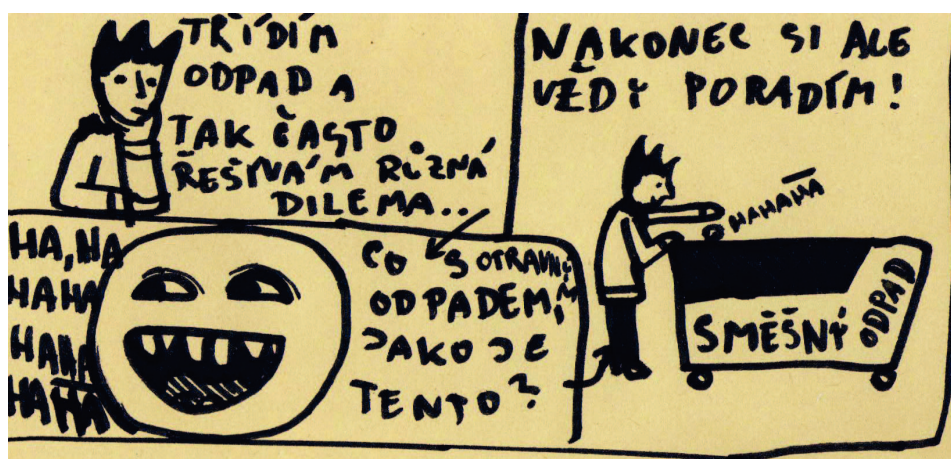 TŘÍDÍM
ODPAD A
TAK ČASTO
ŘEŠÍVÁM RŮZNÁ
DILEMA..
HA, HA
HAHA
HAHA
HAHA
CO S OTRAVNÝM
ODPADEM
JAKO JE
TENTO?
NAKONEC SI ALE
VŽDY PORADÍM!
HAHAHA
SMĚŠNÝ
ODPAD